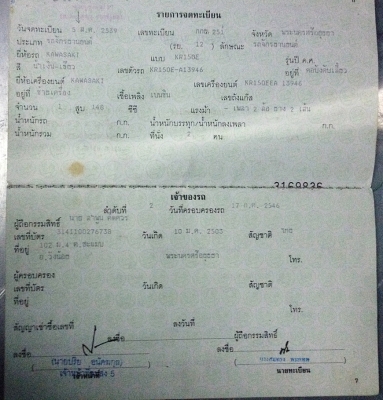 รายการจดทะเบียน
วันจดทะเบียน 5 ส.ค. 2539 เลขทะเบียน กกฉ 251 จังหวัด พระนครศรีอยุธยา
ประเภท รถจักรยานยนต์ (รย. 12 ) ลักษณะ รถจักรยานยนต์
ยี่ห้อรถ KAWASAKI แบบ KR150E รุ่นปี ค.ศ.
สี เลขตัวรถ KR150E-A13946 อยู่ที่
ยี่ห้อเครื่องยนต์ KAWASAKI เลขเครื่องยนต์ KR150EEA 13946
อยู่ที่ เชื้อเพลิง เบนซิน เลขถังแก๊ส
จำนวน 1 สูบ 148 ซีซี แรงม้า เพลา 2 ล้อ ยาง 2 เส้น
น้ำหนักรถ ก.ก. น้ำหนักบรรทุก/น้ำหนักลงเพลา ก.ก.
น้ำหนักรวม ก.ก. ที่นั่ง 2 คน
3169836
เจ้าของรถ
ลำดับที่ 2 วันที่ครอบครองรถ 17 ก.ค. 2546
ผู้ถือกรรมสิทธิ์ นาย
เลขที่บัตร 3141200276738 วันเกิด 10 ม.ค. 2503 สัญชาติ ไทย
ที่อยู่ 102 ม.4
อ.วังน้อย พระนครศรีอยุธยา โทร.
ผู้ครอบครอง
เลขที่บัตร วันเกิด สัญชาติ
ที่อยู่ โทร.
สัญญาเช่าซื้อเลขที่ ลงวันที่
ลงชื่อ ผู้ถือกรรมสิทธิ์
ลงชื่อ ลงชื่อ
นายทะเบียน
7